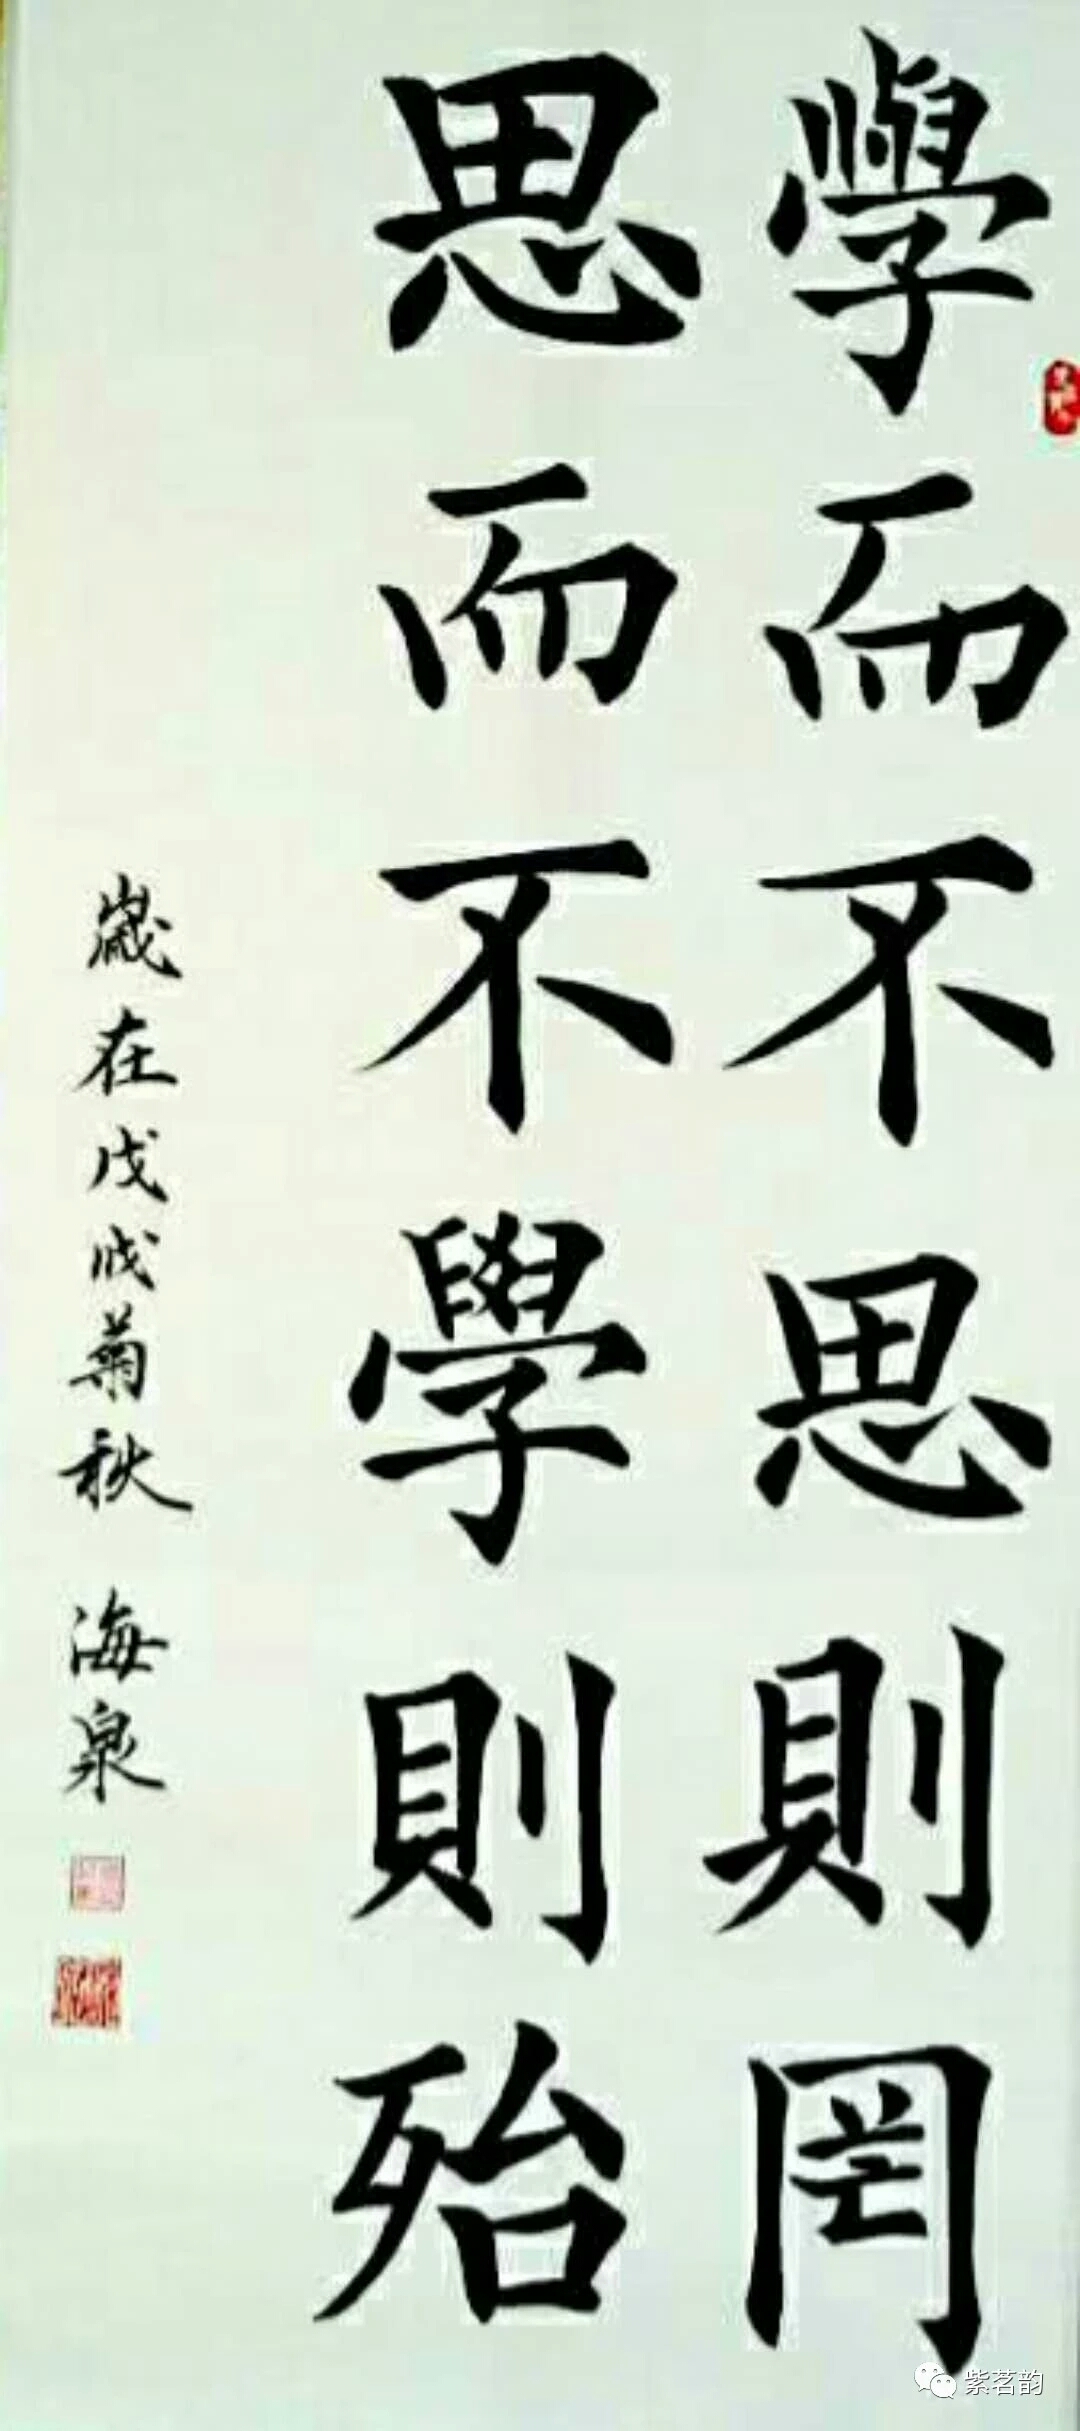 學而不思則罔
思而不學則殆
歲在戊戌菊秋 海泉
紫茗韵